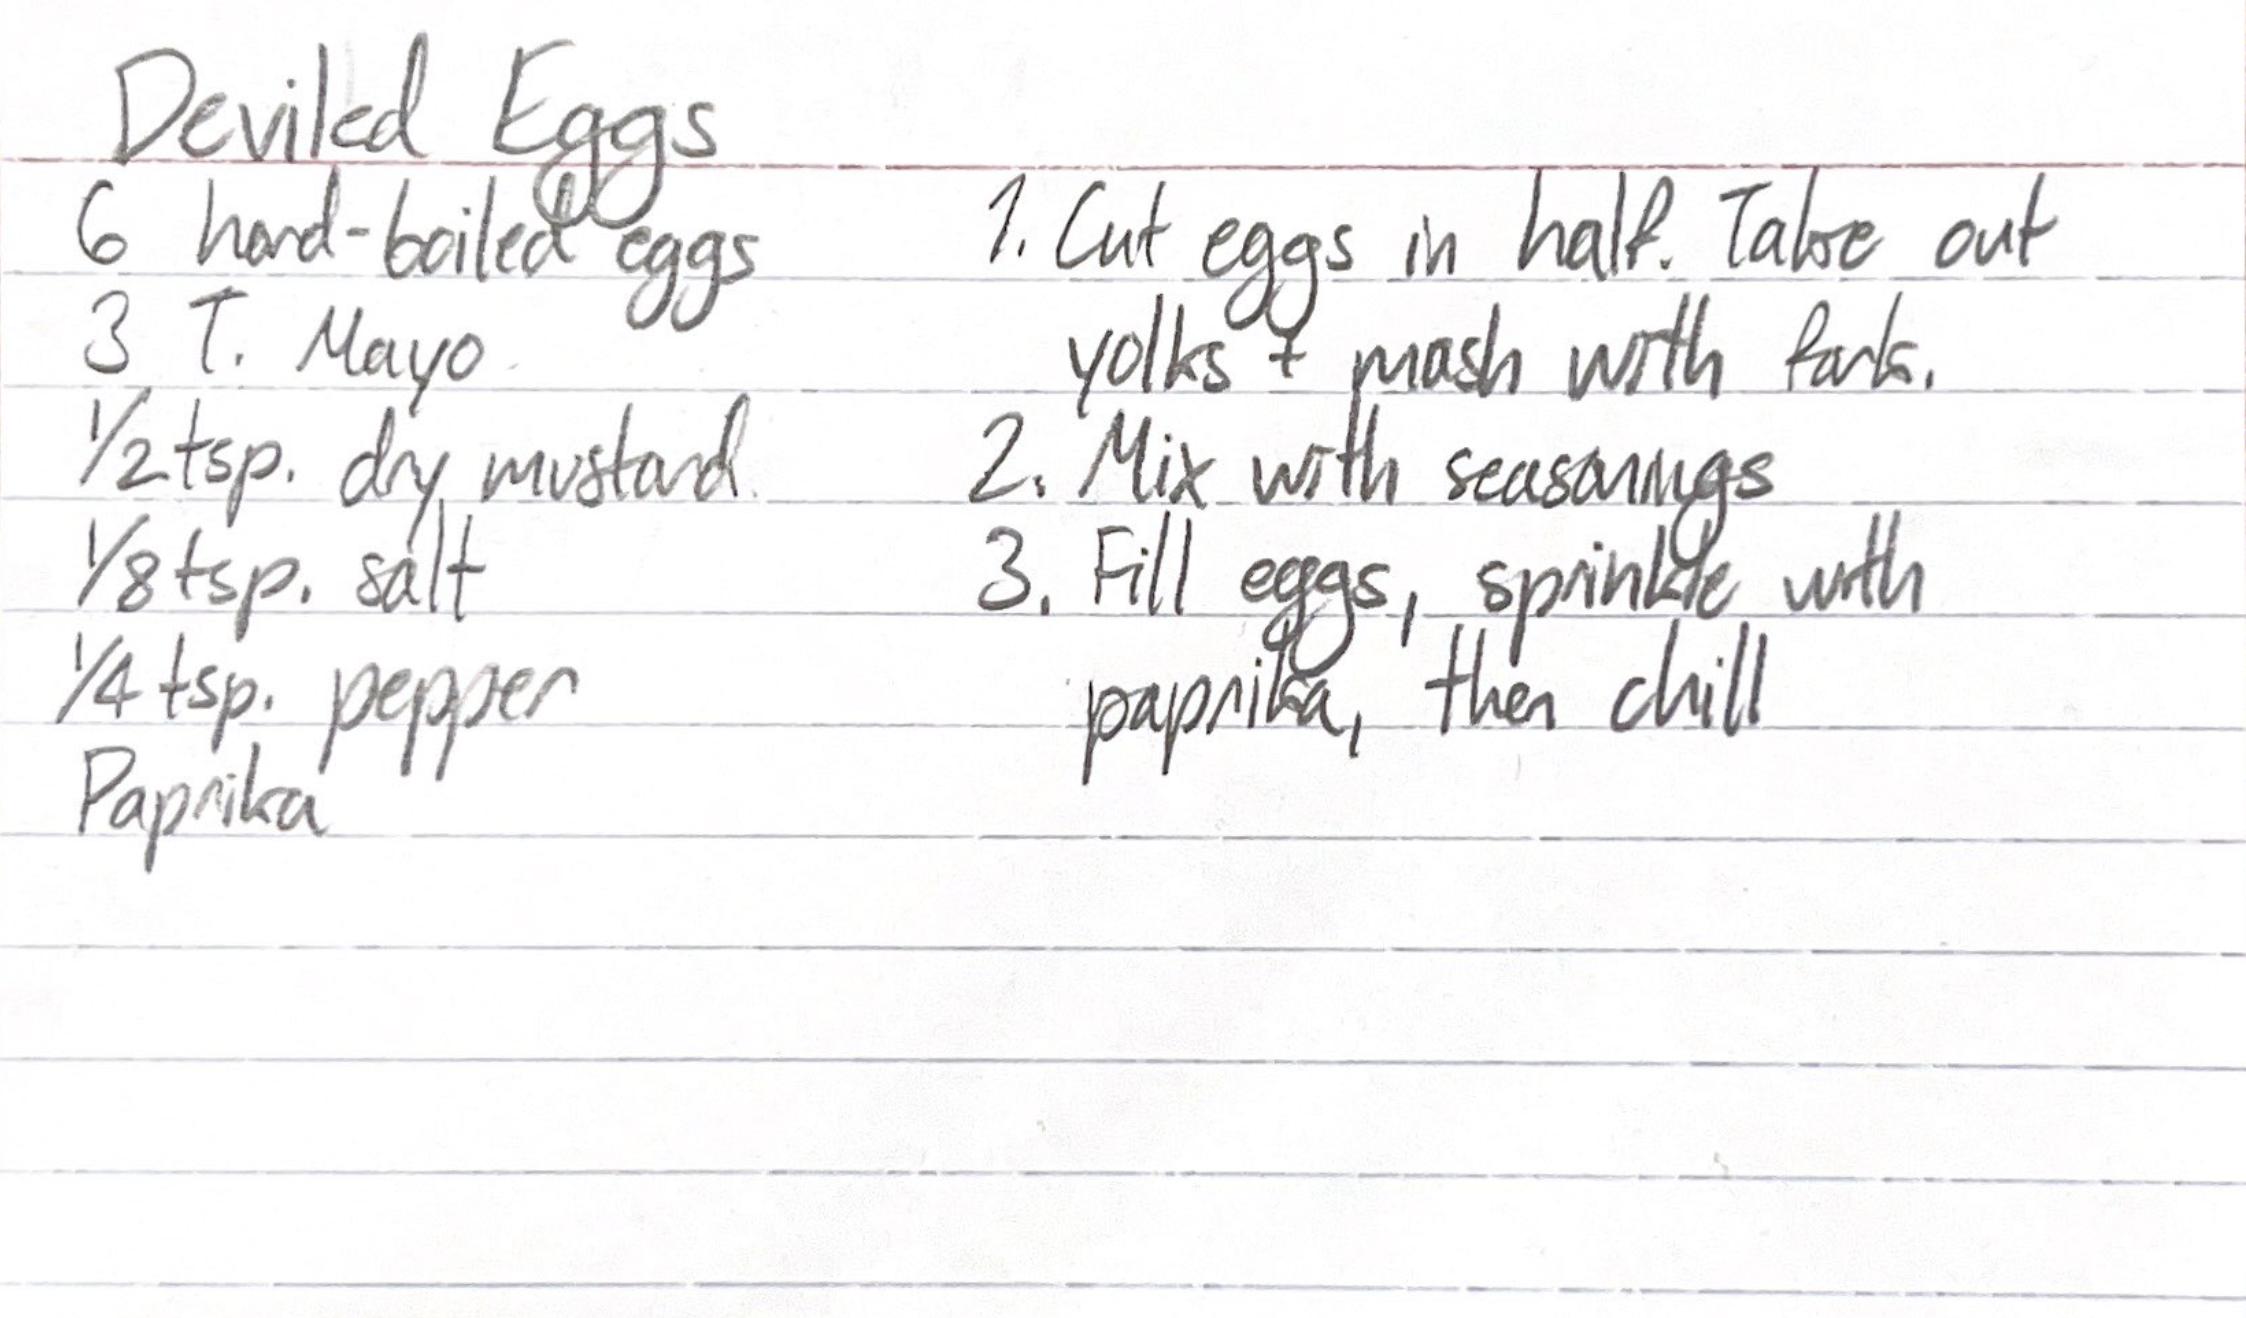 Deviled Eggs
6 hard-boiled eggs
3 T. Mayo
1/2 tsp. dry mustard
1/8 tsp. salt
1/4 tsp. pepper
Paprika
1. Cut eggs in half. Take out
yolks + mash with fork.
2. Mix with seasonings
3. Fill eggs, sprinkle with
paprika, then chill